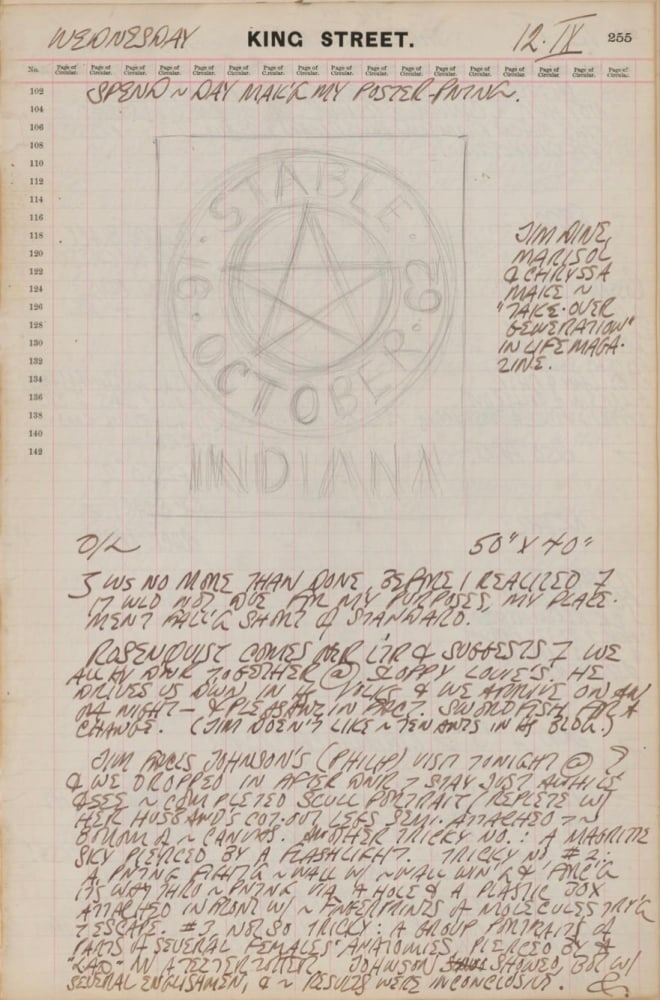 WEDNESDAY KING STREET. 12·IX 255
No. Page of Circular. Page of Circular. Page of Circular. Page of Circular. Page of Circular. Page of Circular. Page of Circular. Page of Circular. Page of Circular. Page of Circular. Page of Circular. Page of Circular. Page of Circular. Page of Circular. Page of Circular. Page of Circular.
102 SPEND ~ DAY MAK'G MY POSTER-PNTNG.
104
106
108
110
112
114
116
118
120
122
124
126
128
130
132
134
136
138
140
142
· STABLE ·
61
62
· OCTOBER ·
INDIANA
JIM DINE,
MARISOL
& CHRYSSA
MAKE ~
"TAKE-OVER
GENERATION"
IN LIFE MAGA-
ZINE.
O/L 50" X 40"
WS NO MORE THAN DONE, BEFORE I REALIZED
IT WLD NOT DUE FOR MY PURPOSES, MY PLACE-
MENT FALL'G SHORT OF STANDARD.
ROSENQUIST COMES OVER LTR & SUGGESTS WE
ALL TOGETHER @ SLOPPY LOUIE'S. HE
DRIVES US DWN IN & WE ARRIVE ON AN
NIGHT — & PLEASANT IN FACT. SWORDFISH, FOR A
CHANGE. (JIM DOESN'T LIKE ~ TENANTS IN BLDG.)
JIM JOHNSON'S (PHILIP) VISIT TONIGHT @ 7
& WE DROPPED IN AFTER DNR STAY JUST AWHILE
& SEE ~ COMPLETED SCULL PORTRAIT (REPLETE W/
HER HUSBAND'S CUT-OUT LEGS SEMI-ATTACHED ~
BOTTOM ~ CANVAS. ANOTHER TRICKY NO.: A MAGRITTE
SKY PIERCED BY A FLASHLIGHT. TRICKY NO #2:
A PNTNG ~ WALL W/ ~ WALL & FORC'G
ITS WAY THRO ~ PNTNG VIA A HOLE & A PLASTIC BOX
ATTACHED IN FRONT W/ ~ FINGERPRINTS OF MOLECULES TRY'G
ESCAPE. #3, NOT SO TRICKY: A GROUP PORTRAITS OF
PARTS OF SEVERAL FEMALES' ANATOMIES, PIERCED BY A
JOHNSON SHOWED, BUT W/
SEVERAL ENGLISHMEN, & ~ RESULTS WERE INCONCLUSIVE.